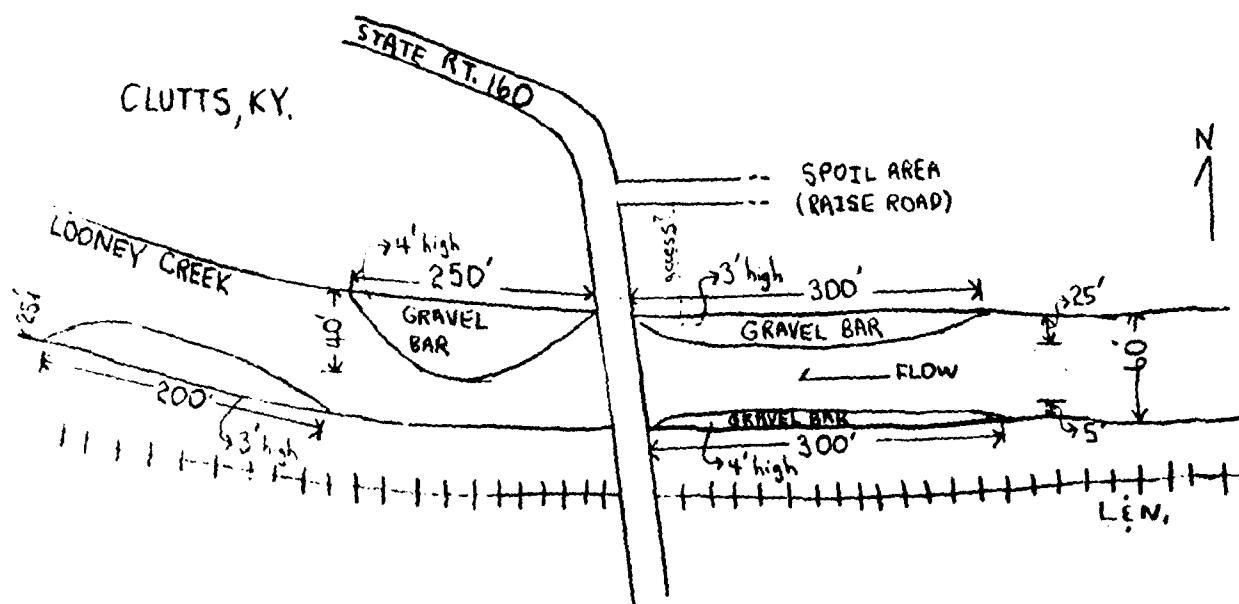 STATE RT. 160
CLUTTS, KY.
N
SPOIL AREA
(RAISE ROAD)
LOONEY CREEK
4' high
250'
access?
3' high
300'
25'
GRAVEL
BAR
GRAVEL BAR
40'
25'
FLOW
60'
200'
3' high
GRAVEL BAR
5'
300'
4' high
L&N.